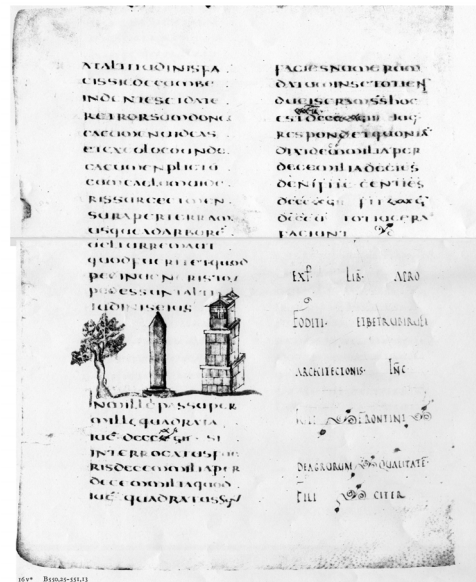 ATALTITUDINISFA
CISSICDECUMBE
INDENTESETDATE
RETRORSUMDONC
CACUMENUIDEAS
ETEXEOLOCOUNDE
CACUMENPLICITO
RISSURGEETOMEN
SURAPERTERRAM
USQUEADARBORE
UELTURREMAUT
QUODFUERITETQUOD
PEDINUENERISTOT
PEDESSUNTALTI
TUDINISEIUS
INMILLEPASSUPER
MILLEQUADRATA
IUG SI
INTERROCATUSFUE
RISDECEMMILIAPER
DECEMMILIAQUOD
IUG QUADRATUSSIN
FACIESNUMERUM
DATUMINSETOTIEN
DUCISERAMSSHOC
EST IUG
RESPONDETQUONIA
DECEMMILIADECIES
DENIFIT CENTIES
TOTIUGERA
FACIUNT
EXP LIB AFRO
FODITI ETBETRUBIRUFI
ARCHITECTONIS INC
IULI FRONTINI
DEAGRORUM QUALITATE
FILI CITER
16v* B550,25-551,13